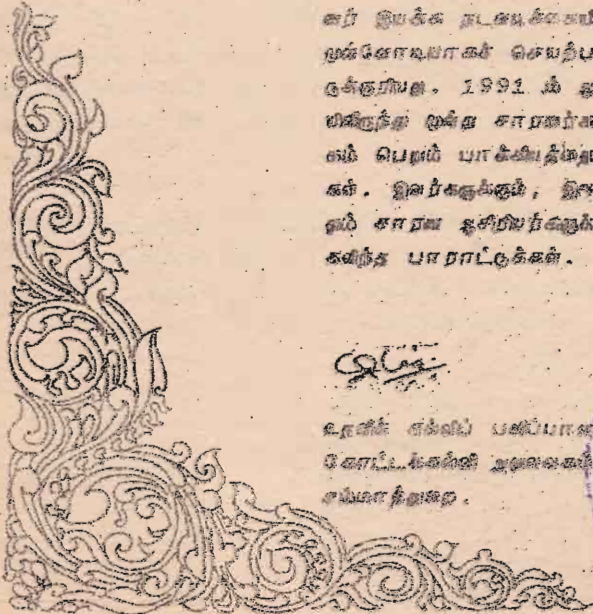 னர் இயக்க நடவடிக்கையி
முன்னோடியாகச் செயற்ப
குக்குரியது. 1991 ம் ஆ
யிலிருந்து மூன்று சாரணர்க
லம் பெறும் பாக்கியத்தை
கள். இவர்களுக்கும், இவ
லும் சாரண ஆசிரியர்களுக்
கனிந்த பாராட்டுக்கள்.
கல்விப் பணிப்பாள
கோட்டக்கல்வி அலுவலகம்
சம்மாந்துறை.